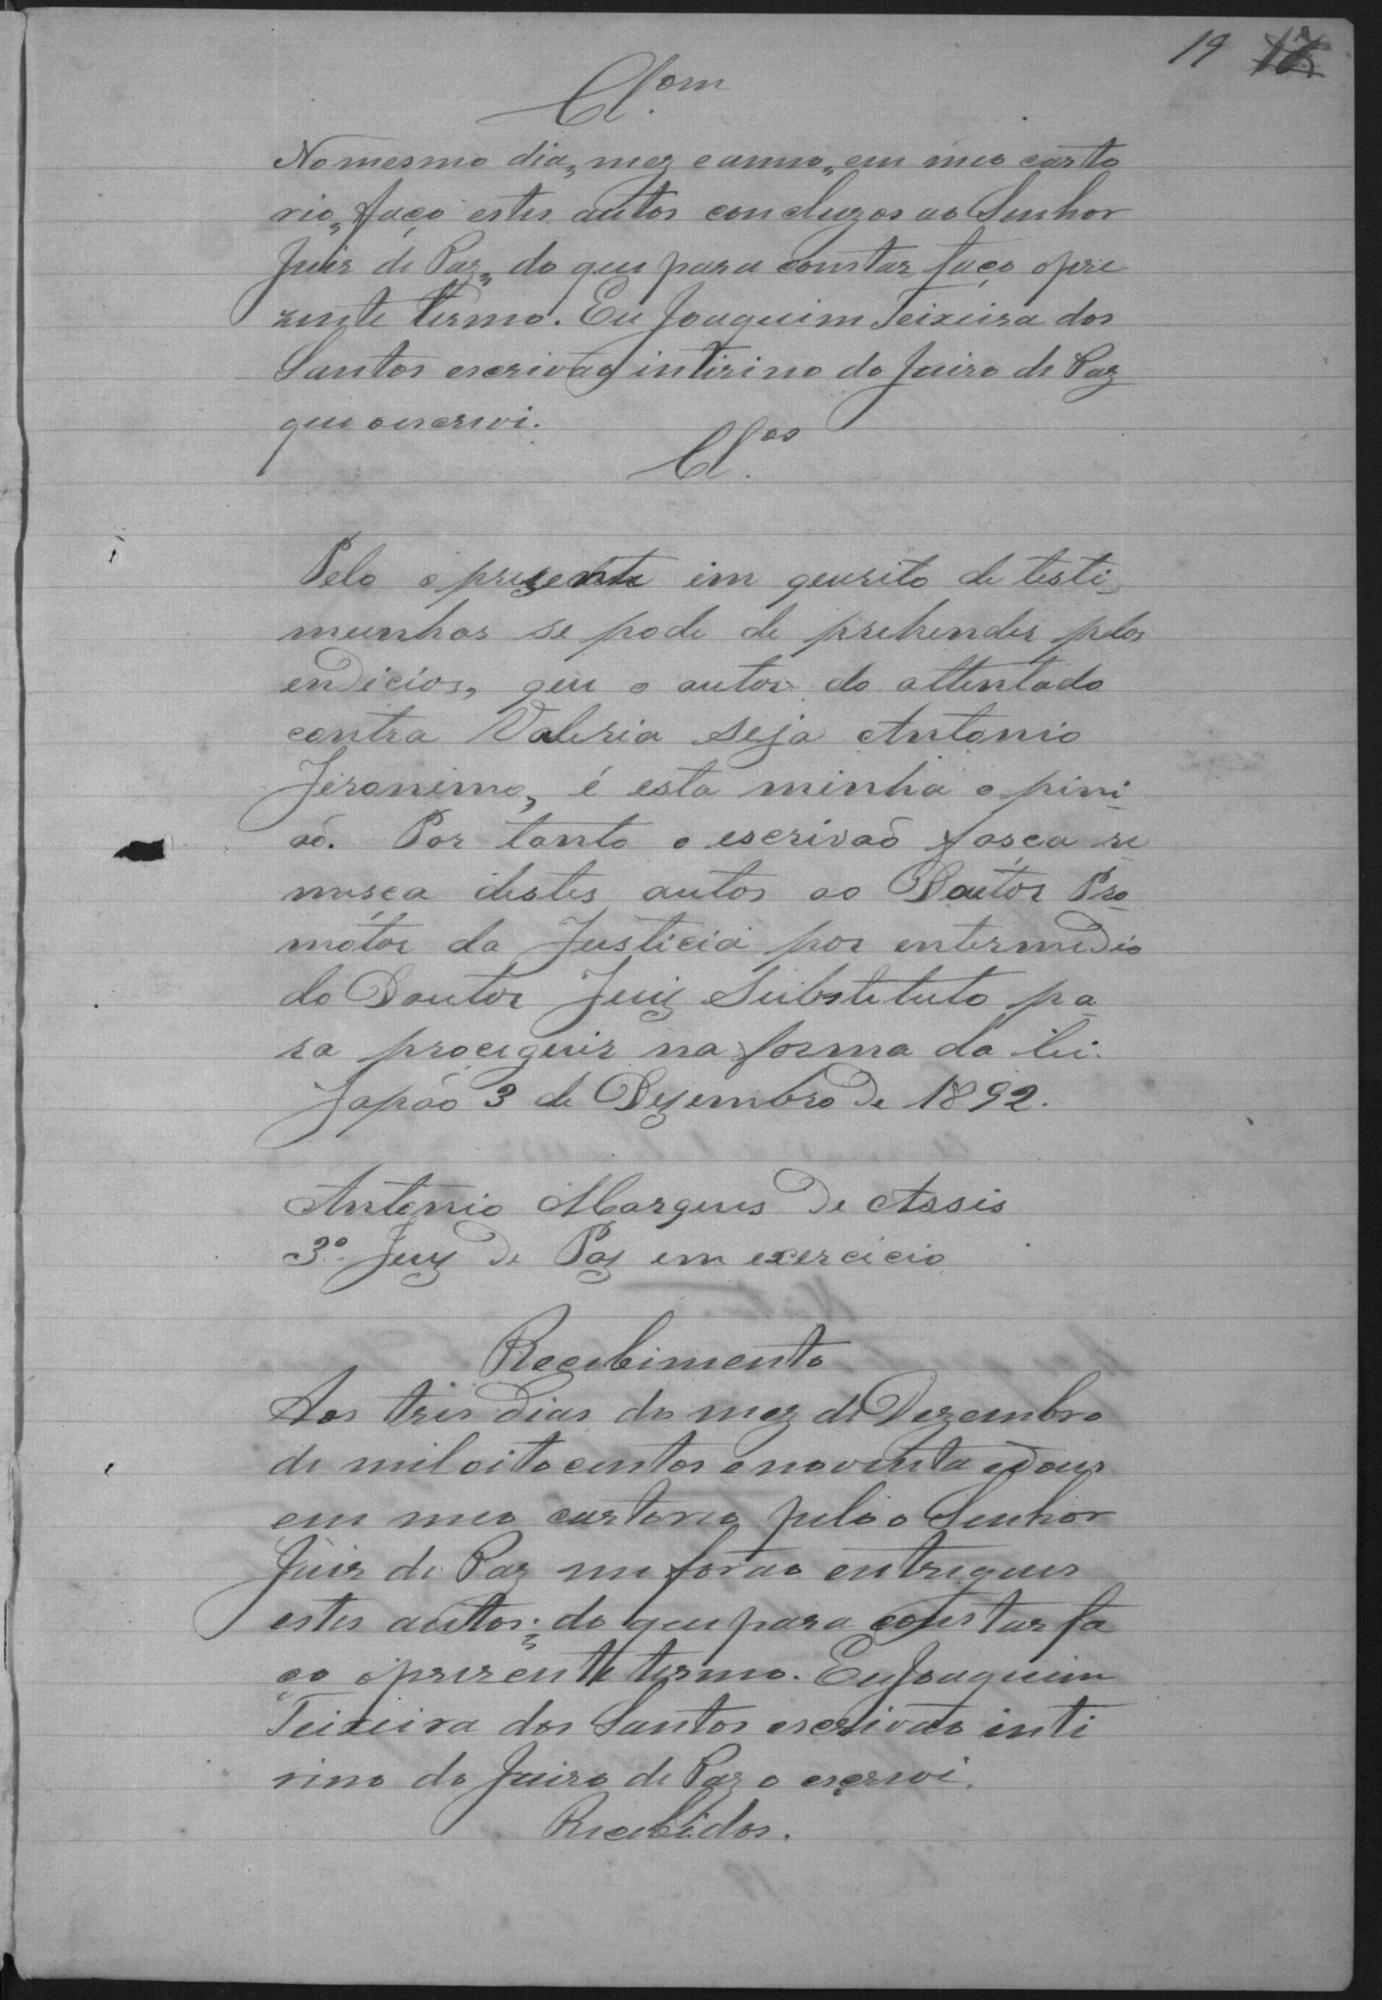 19 17
Cl.om
No mesmo dia, mez e anno, em meo carto
rio, faço estes autos concluzos ao Senhor
Juis de Paz, do que para constar faço o pre
zente termo. Eu Joaquim Teixeira dos
Santos escrivão intirino do Juizo de Paz
que o escrevi.
Cl.os
Pelo o prezente im querito de testi-
munhas se pode de prehender pelos
endicios, que o autor do attentado
contra Valeria seja Antonio
Jeronimo, é esta minha o pini-
aõ. Por tanto o escrivaõ fasça re
messa destes autos ao Doutor Pro-
mótor da Justicia por entermedio
do Doutor Juiz Substituto pa-
ra proceguir na forma da lei.
Japaõ 3 de Dezembro de 1892.
Antonio Marques de Assis
3º Juiz de Paz em exercicio
Recebimento
Aos tres dias do mez de Dezembro
de mil oito centos e noventa e dous
em meo cartorio pelo o Senhor
Juis de Paz me forão entregues
estes autos; do que para constar fa
ço o prezente termo. Eu Joaquim
Teixeira dos Santos escrivão inti
rino do Juizo de Paz o escrevi.
Recebidos.